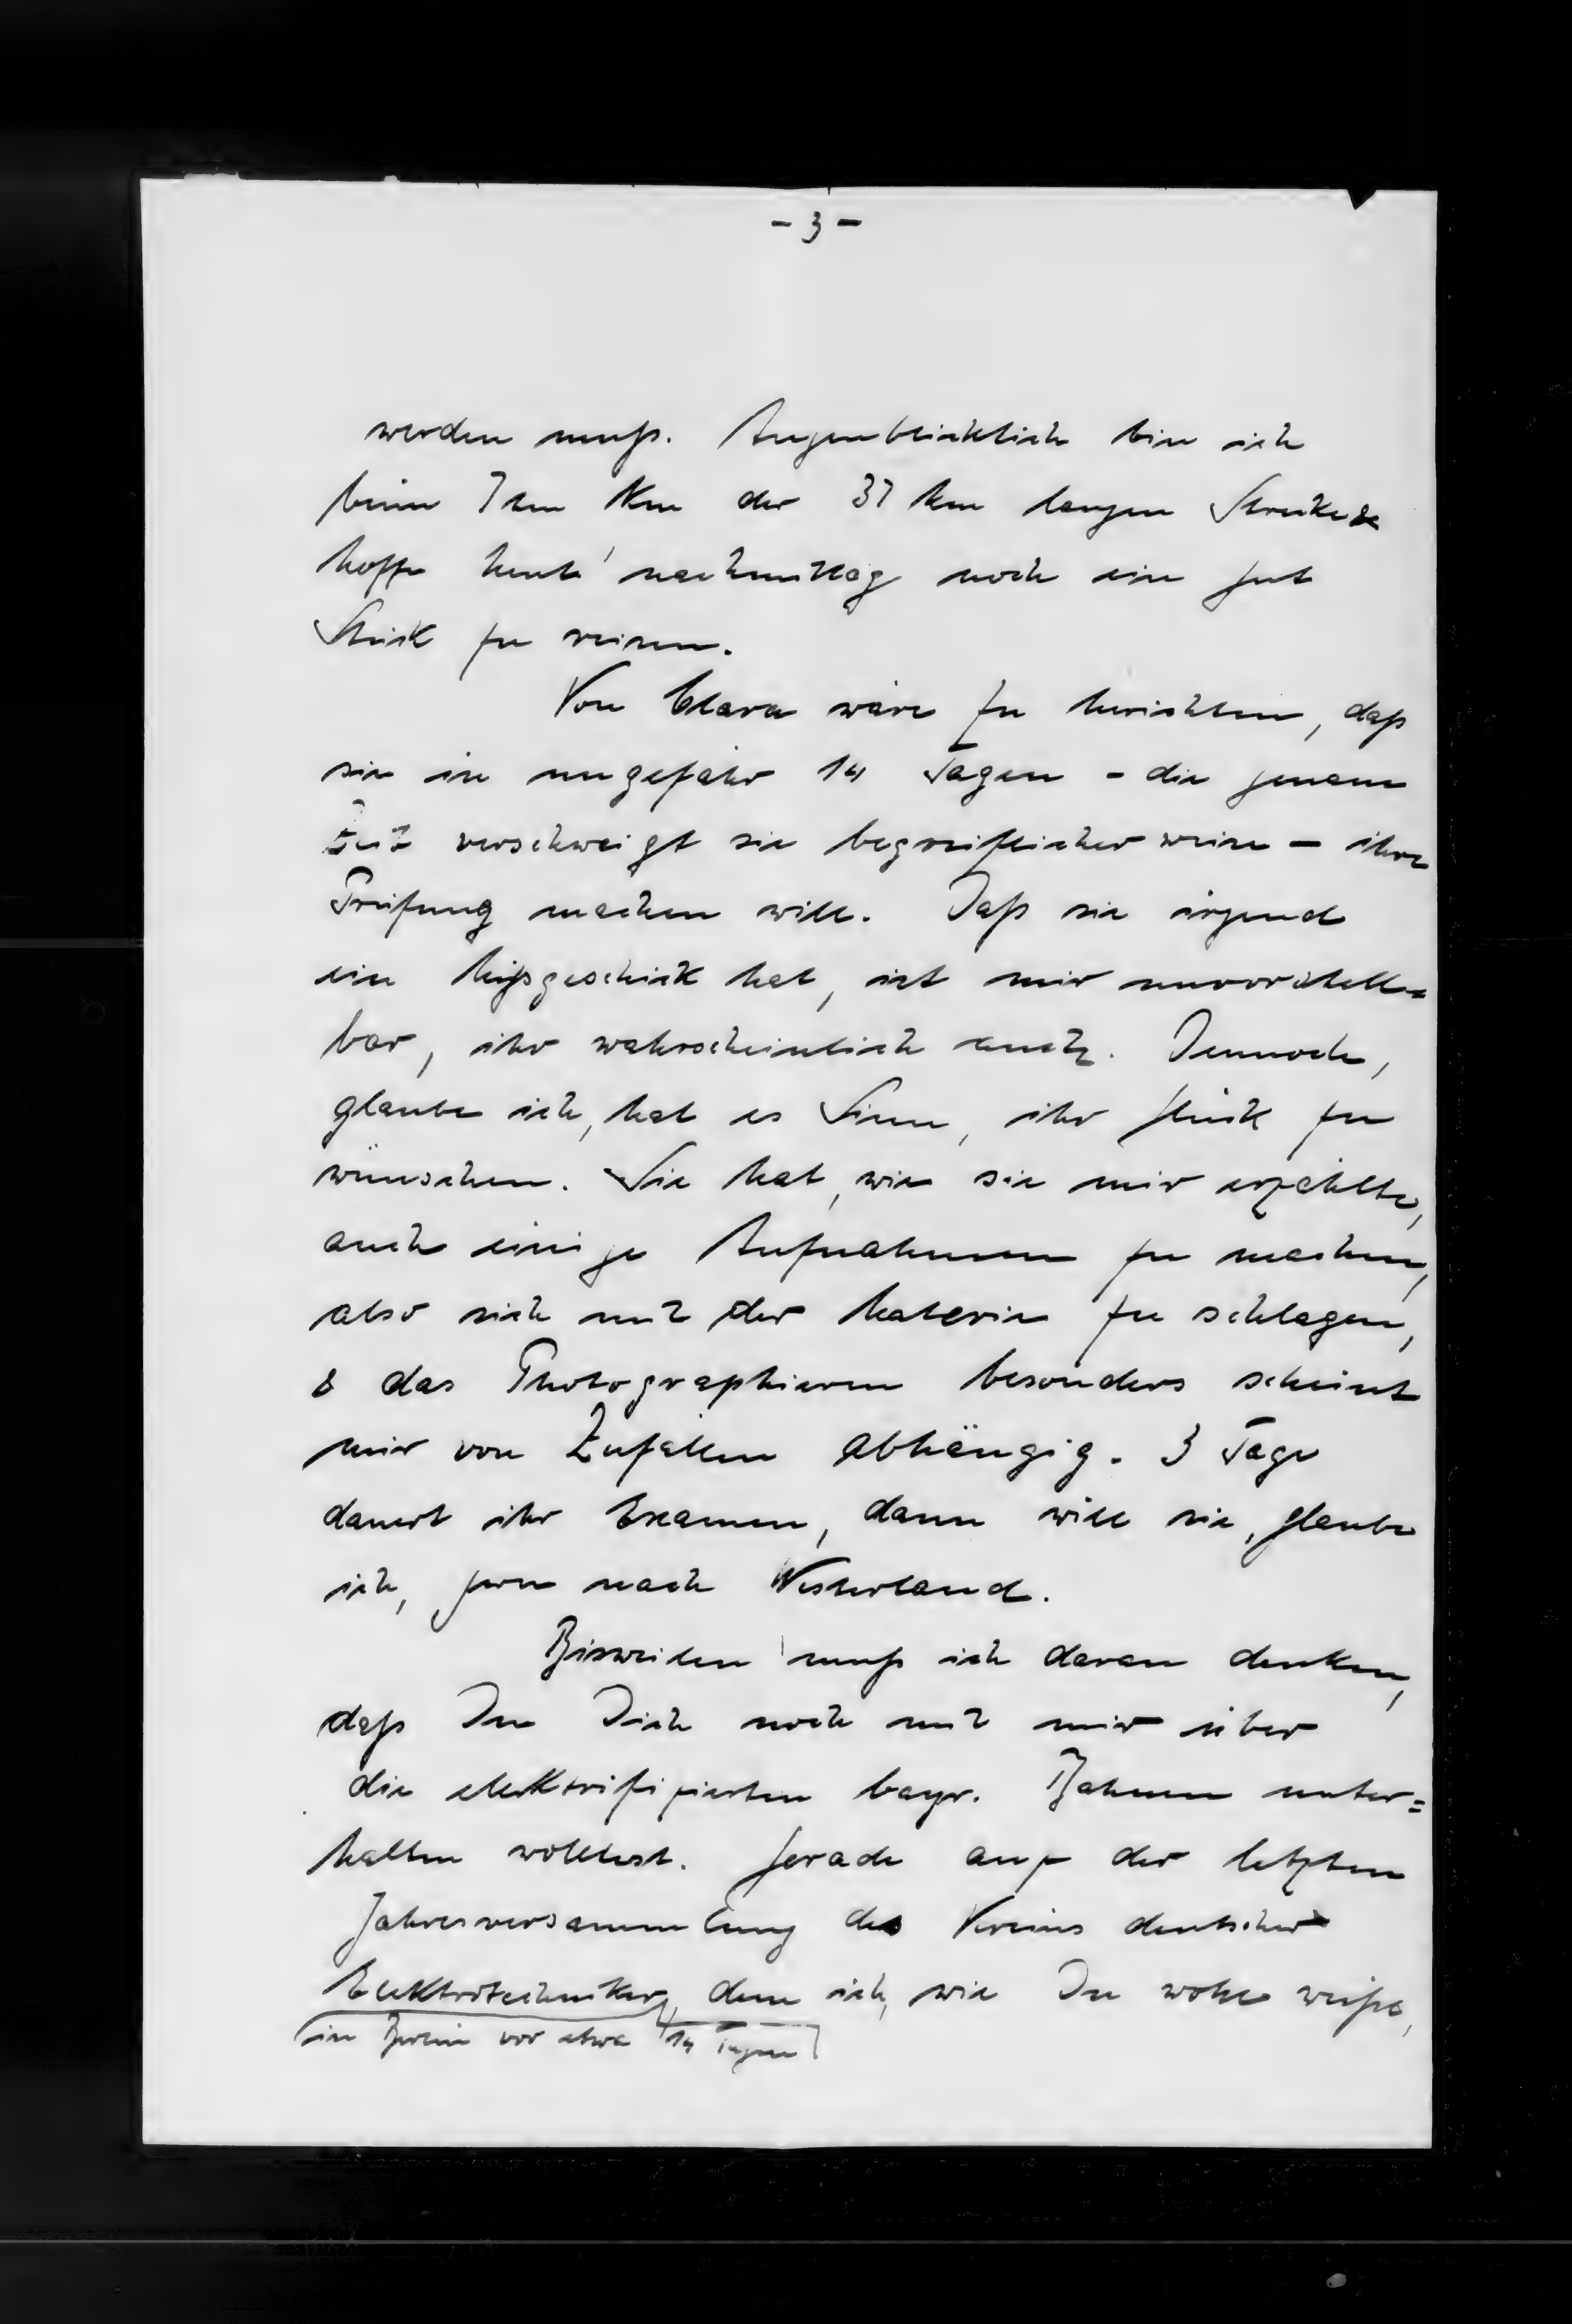 - 3 -
werden muß. Augenblicklich bin ich
beim 7ten Km der 37 km langen Strecke &
hoffe heute nachmittag noch ein gut
Stück zu reisen.
Von Clara wäre zu berichten, daß
sie in ungefähr 14 Tagen - die genaue
Zeit verschweigt sie begreiflicherweise - ihre
Prüfung machen will. Daß sie irgend
ein Mißgeschick hat, ist mir unvorstell=
bar, ihr wahrscheinlich auch. Dennoch,
glaube ich, hat es Sinn, ihr Glück zu
wünschen. Sie hat, wie sie mir erzählte,
auch einige Aufnahmen zu machen,
also sich mit der Materie zu schlagen,
& das Photographieren besonders scheint
mir von Zufällen abhängig. 3 Tage
dauert ihr Examen, dann will sie, glaube
ich, gern nach Westerland.
Bisweilen muß ich daran denken,
daß Du Dich noch mit mir über
die elektrifizierten bayr. Bahnen unter=
halten wolltest. Gerade auf der letzten
Jahresversammlung des Vereins deutscher
Elektrotechniker, dem ich, wie Du wohl weißt,
in Berlin vor etwa 14 Tagen